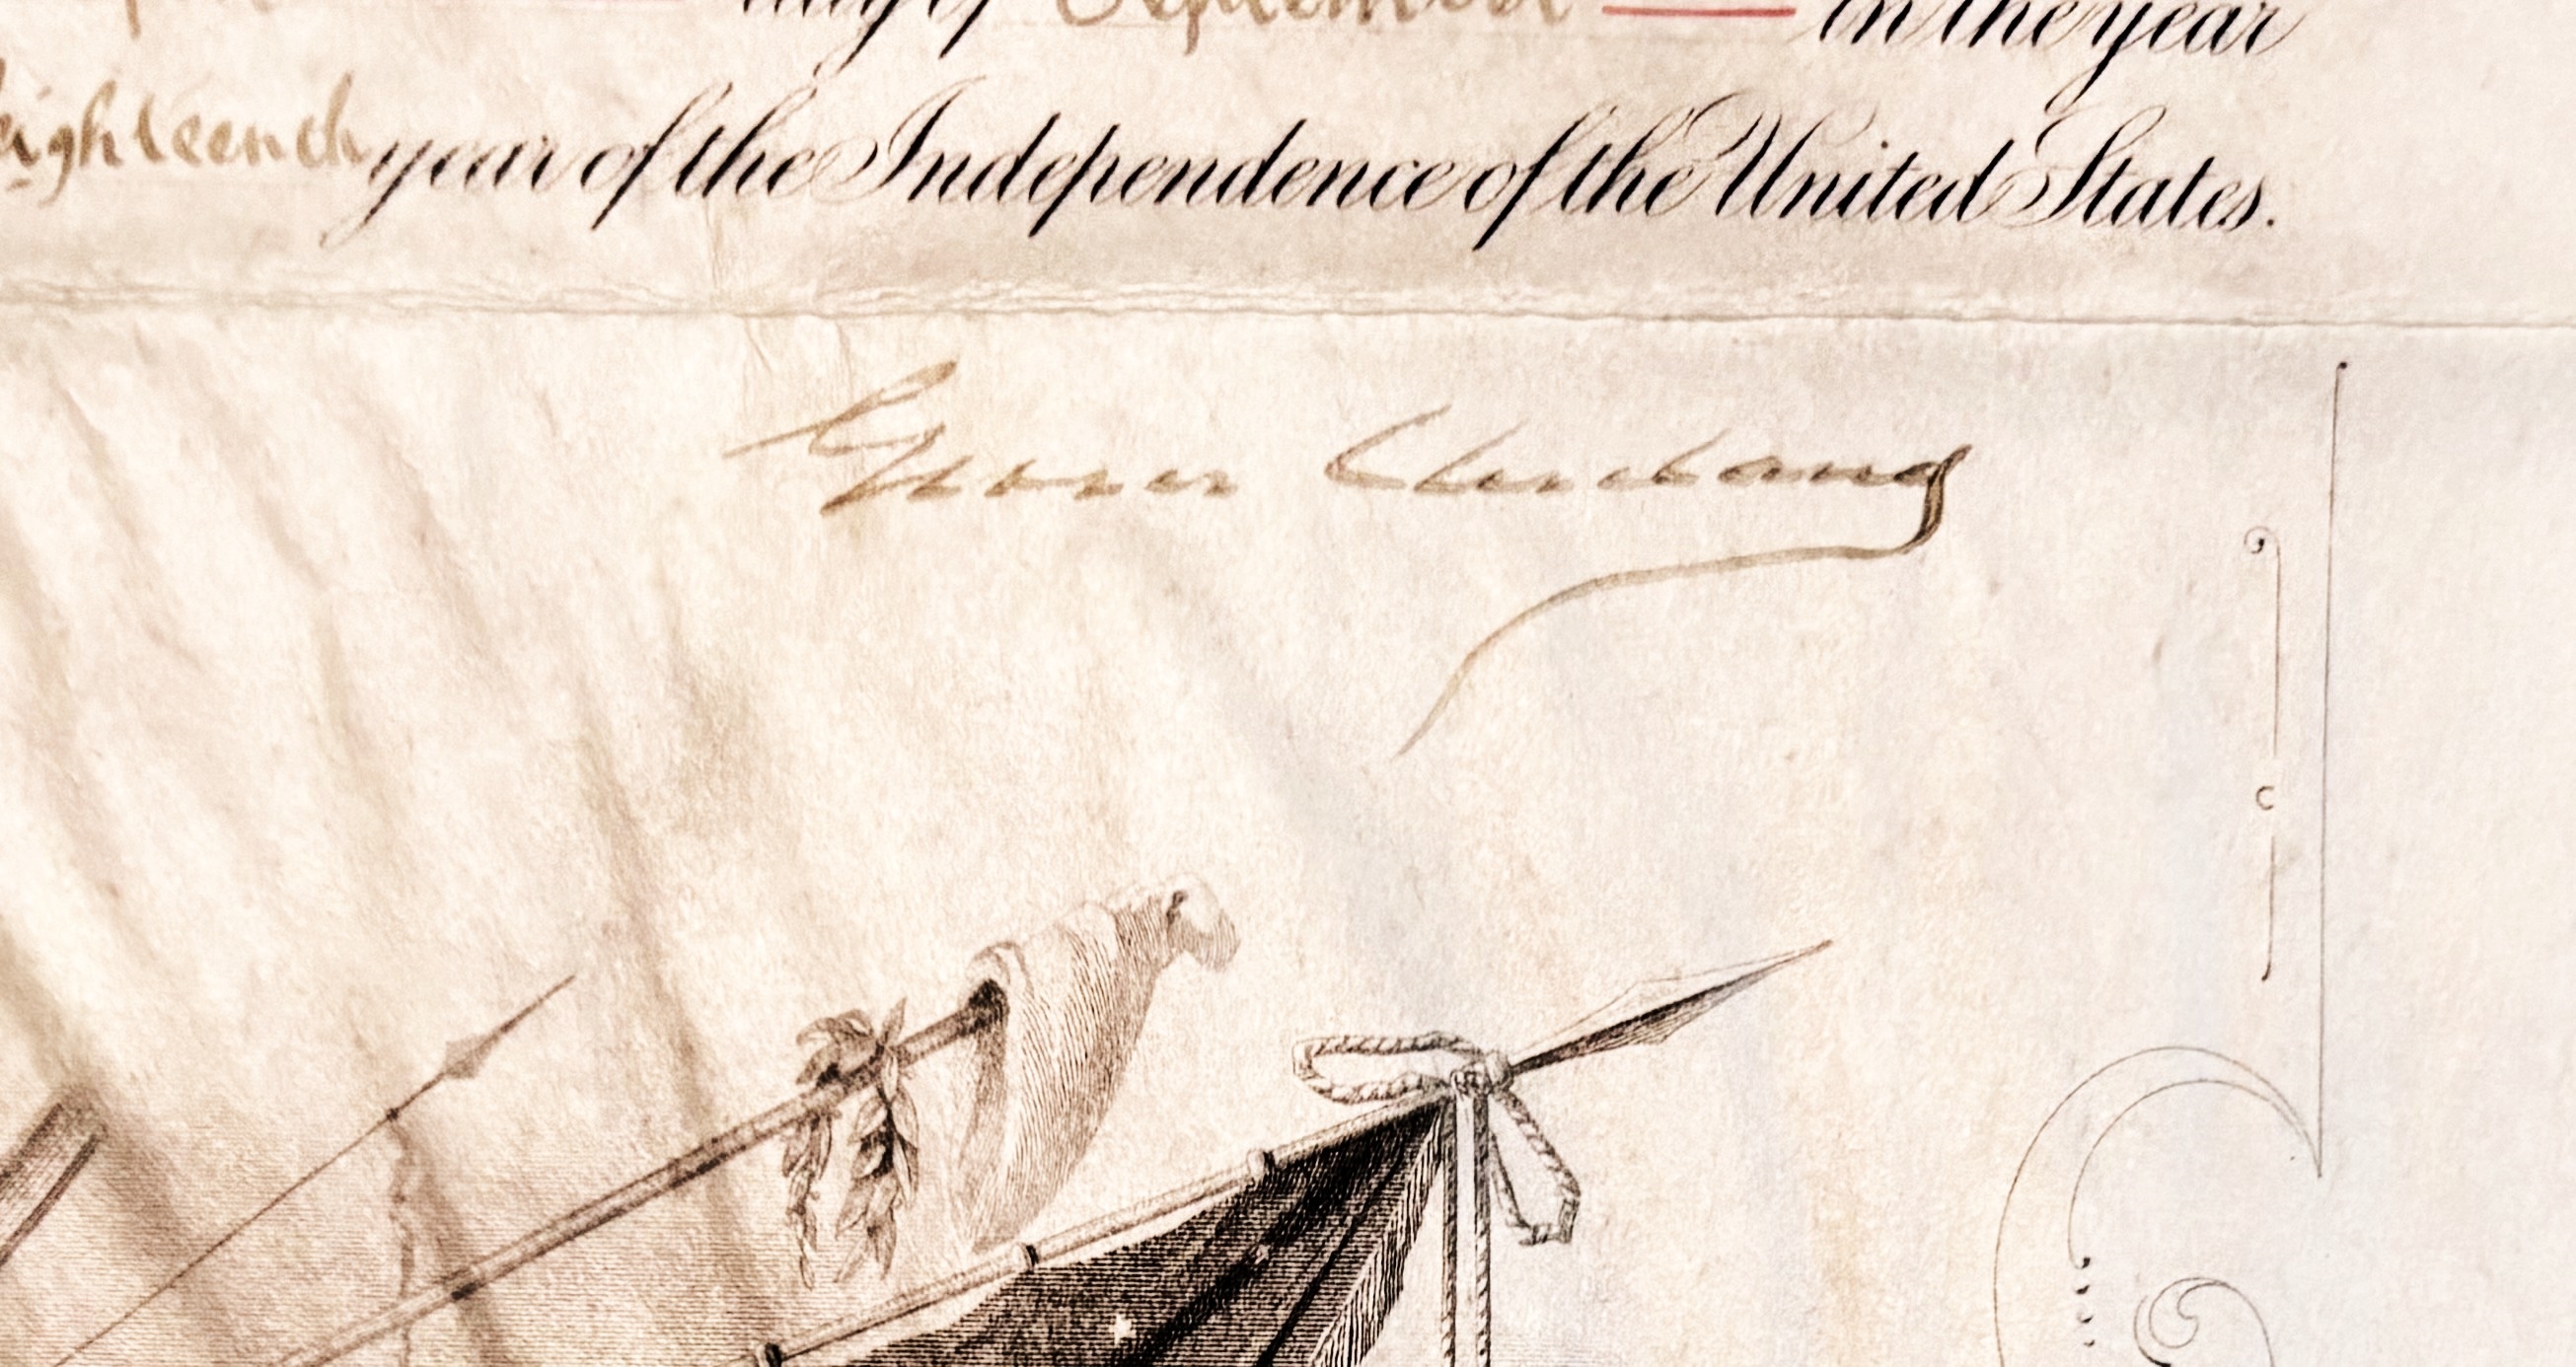 day of September in the year
eighteenth year of the Independence of the United States.
Grover Cleveland